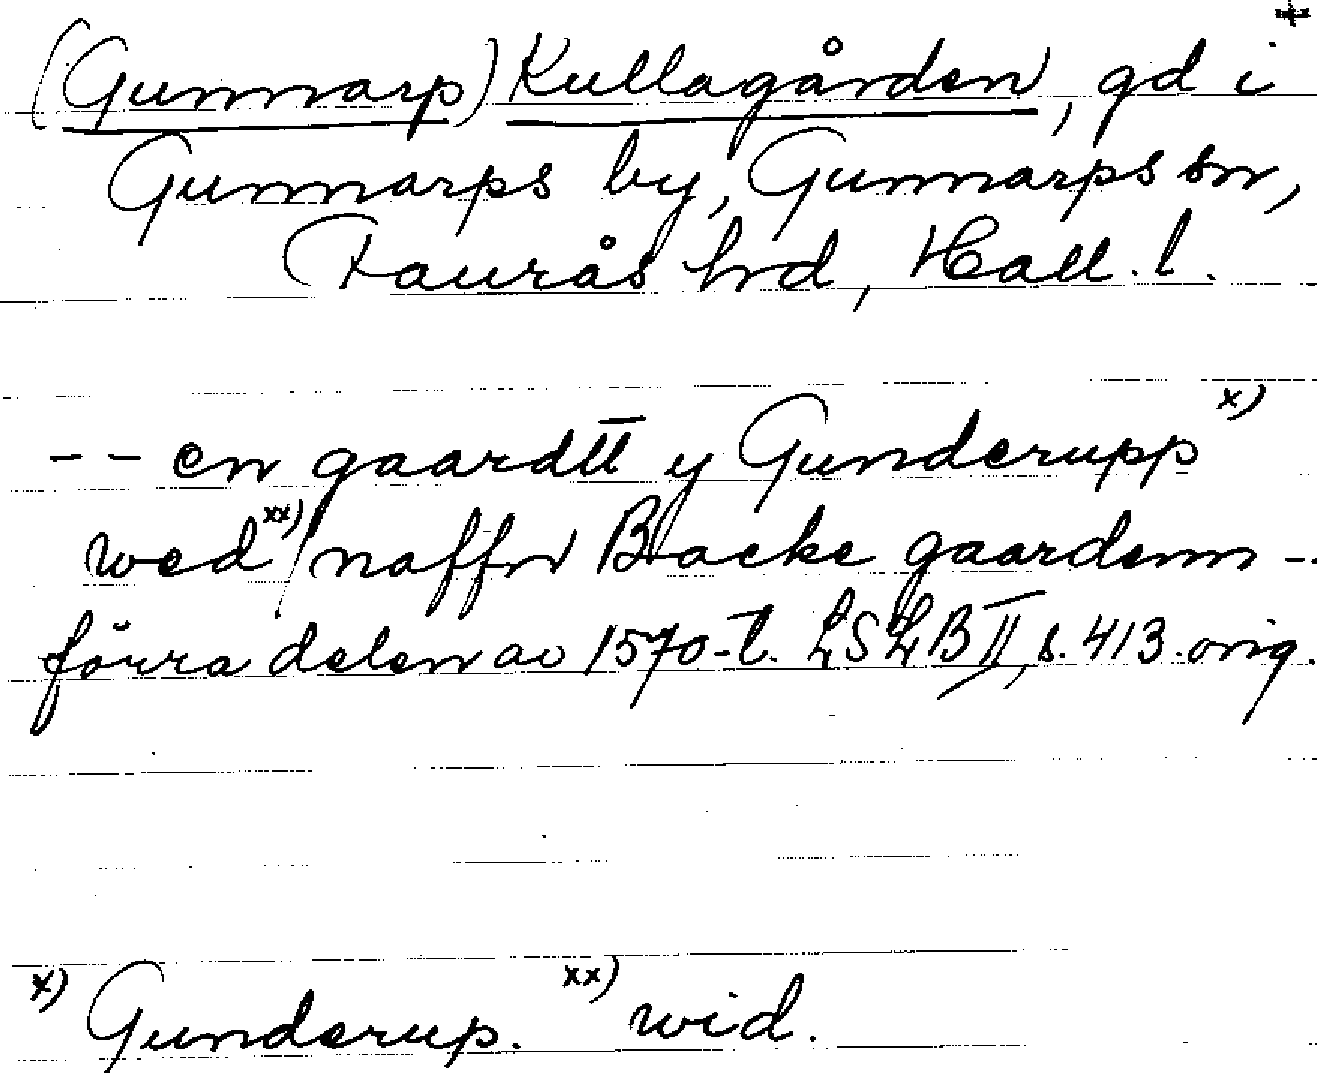 (Gunnarp) Kullagården, gd i
Gunnarps by, Gunnarps sn,
Faurås hrd, Hall. l.
-- en gaardtt y Gunderupp x)
wed xx) naffn Backe gaardenn --
förra delen av 1570-t. LSLB II, s. 413. orig.
x) Gunderup. xx) wid.